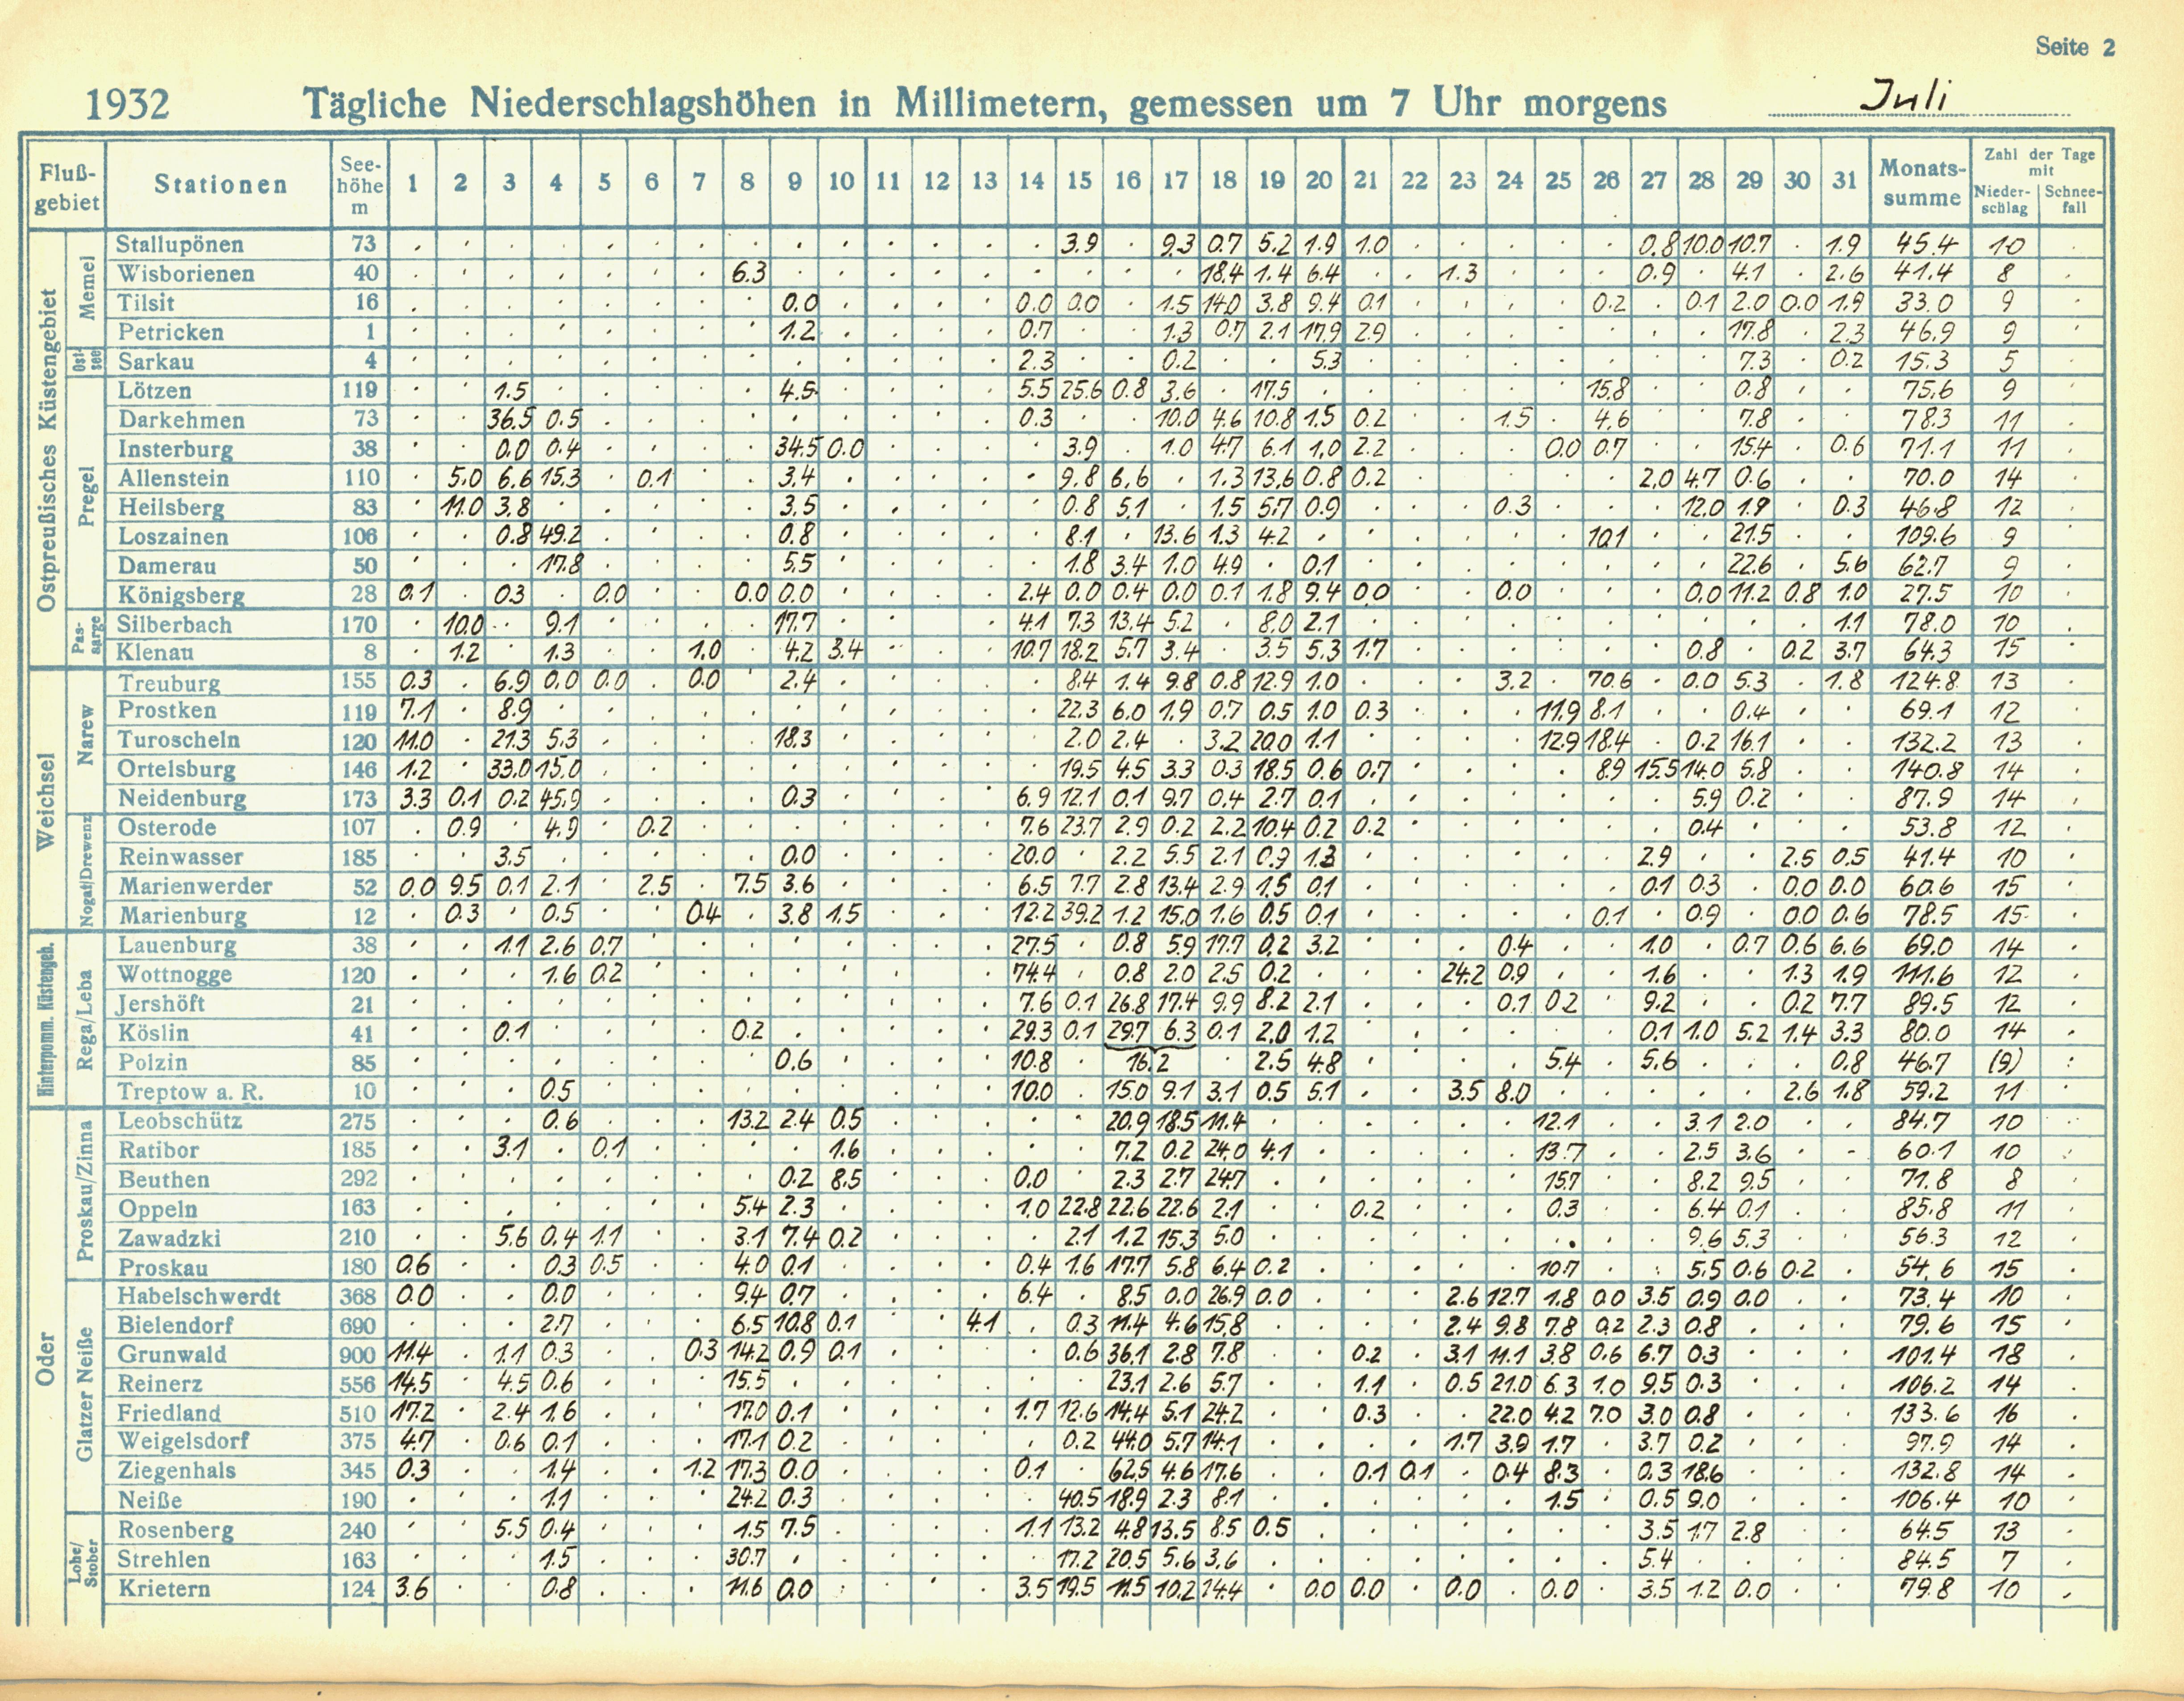 Seite 2
1932 Tägliche Niederschlagshöhen in Millimetern, gemessen um 7 Uhr morgens Juli
Flußgebiet Stationen Seehöhe m 1 2 3 4 5 6 7 8 9 10 11 12 13 14 15 16 17 18 19 20 21 22 23 24 25 26 27 28 29 30 31 Monatssumme Zahl der Tage mit Niederschlag Schneefall
Ostpreußisches Küstengebiet
Memel
Stallupönen 73 . . . . . . . . . . . . . . 3.9 . 9.3 0.7 5.2 1.9 1.0 . . . . . 0.8 10.0 10.7 . 1.9 45.4 10 .
Wisborienen 40 . . . . . . . 6.3 . . . . . . . . . 18.4 1.4 6.4 . . 1.3 . . . 0.9 . 4.1 . 2.6 41.4 8 .
Tilsit 16 . . . . . . . . 0.0 . . . . 0.0 0.0 . 1.5 14.0 3.8 9.4 0.1 . . . . 0.2 . 0.1 2.0 0.0 1.9 33.0 9 .
Petricken 1 . . . . . . . . 1.2 . . . . 0.7 . . 1.3 0.7 2.1 17.9 2.9 . . . . . . . 17.8 . 2.3 46.9 9 .
Ostsee
Sarkau 4 . . . . . . . . . . . . . 2.3 . . 0.2 . . 5.3 . . . . . . . . 7.3 . 0.2 15.3 5 .
Pregel
Lötzen 119 . . 1.5 . . . . . 4.5 . . . . 5.5 25.6 0.8 3.6 . 17.5 . . . . . . 15.8 . . 0.8 . . 75.6 9 .
Darkehmen 73 . . 36.5 0.5 . . . . . . . . . 0.3 . . 10.0 4.6 10.8 1.5 0.2 . . 1.5 . 4.6 . . 7.8 . . 78.3 11 .
Insterburg 38 . . 0.0 0.4 . . . . 34.5 0.0 . . . . 3.9 . 1.0 4.7 6.1 1.0 2.2 . . . 0.0 0.7 . . 15.4 . 0.6 71.1 11 .
Allenstein 110 . 5.0 6.6 15.3 . 0.1 . . 3.4 . . . . . 9.8 6.6 . 1.3 13.6 0.8 0.2 . . . . . 2.0 4.7 0.6 . . 70.0 14 .
Heilsberg 83 . 11.0 3.8 . . . . . 3.5 . . . . . 0.8 5.1 . 1.5 5.7 0.9 . . . 0.3 . . . 12.0 1.9 . 0.3 46.8 12 .
Loszainen 106 . . 0.8 49.2 . . . . 0.8 . . . . . 8.1 . 13.6 1.3 4.2 . . . . . . 10.1 . . 21.5 . . 109.6 9 .
Damerau 50 . . . 17.8 . . . . 5.5 . . . . . 1.8 3.4 1.0 4.9 . 0.1 . . . . . . . . 22.6 . 5.6 62.7 9 .
Königsberg 28 0.1 . 0.3 . 0.0 . . 0.0 0.0 . . . . 2.4 0.0 0.4 0.0 0.1 1.8 9.4 0.0 . . 0.0 . . . 0.0 11.2 0.8 1.0 27.5 10 .
Passarge
Silberbach 170 . 10.0 . 9.1 . . . . 17.7 . . . . 4.1 7.3 13.4 5.2 . 8.0 2.1 . . . . . . . . . . 1.1 78.0 10 .
Klenau 8 . 1.2 . 1.3 . . 1.0 . 4.2 3.4 . . . 10.7 18.2 5.7 3.4 . 3.5 5.3 1.7 . . . . . . 0.8 . 0.2 3.7 64.3 15 .
Weichsel
Narew
Treuburg 155 0.3 . 6.9 0.0 0.0 . 0.0 . 2.4 . . . . . 8.4 1.4 9.8 0.8 12.9 1.0 . . . 3.2 . 70.6 . 0.0 5.3 . 1.8 124.8 13 .
Prostken 119 7.1 . 8.9 . . . . . . . . . . . 22.3 6.0 1.9 0.7 0.5 1.0 0.3 . . . 11.9 8.1 . . 0.4 . . 69.1 12 .
Turoscheln 120 11.0 . 21.3 5.3 . . . . 18.3 . . . . . 2.0 2.4 . 3.2 20.0 1.1 . . . . 12.9 18.4 . 0.2 16.1 . . 132.2 13 .
Ortelsburg 146 1.2 . 33.0 15.0 . . . . . . . . . . 19.5 4.5 3.3 0.3 18.5 0.6 0.7 . . . . 8.9 15.5 14.0 5.8 . . 140.8 14 .
Neidenburg 173 3.3 0.1 0.2 45.9 . . . . 0.3 . . . . 6.9 12.1 0.1 9.7 0.4 2.7 0.1 . . . . . . . 5.9 0.2 . . 87.9 14 .
Nogat/Drewenz
Osterode 107 . 0.9 . 4.9 . 0.2 . . . . . . . 7.6 23.7 2.9 0.2 2.2 10.4 0.2 0.2 . . . . . . 0.4 . . . 53.8 12 .
Reinwasser 185 . . 3.5 . . . . . 0.0 . . . . 20.0 . 2.2 5.5 2.1 0.9 1.3 . . . . . . 2.9 . . 2.5 0.5 41.4 10 .
Marienwerder 52 0.0 9.5 0.1 2.1 . 2.5 . 7.5 3.6 . . . . 6.5 7.7 2.8 13.4 2.9 1.5 0.1 . . . . . . 0.1 0.3 . 0.0 0.0 60.6 15 .
Marienburg 12 . 0.3 . 0.5 . . 0.4 . 3.8 1.5 . . . 12.2 39.2 1.2 15.0 1.6 0.5 0.1 . . . . . 0.1 . 0.9 . 0.0 0.6 78.5 15 .
Hinterpomm. Küstengeb.
Rega/Leba
Lauenburg 38 . . 1.1 2.6 0.7 . . . . . . . . 27.5 . 0.8 5.9 17.7 0.2 3.2 . . . 0.4 . . 1.0 . 0.7 0.6 6.6 69.0 14 .
Wottnogge 120 . . . 1.6 0.2 . . . . . . . . 74.4 . 0.8 2.0 2.5 0.2 . . . 24.2 0.9 . . 1.6 . . 1.3 1.9 111.6 12 .
Jershöft 21 . . . . . . . . . . . . . 7.6 0.1 26.8 17.4 9.9 8.2 2.1 . . . 0.1 0.2 . 9.2 . . 0.2 7.7 89.5 12 .
Köslin 41 . . 0.1 . . . . 0.2 . . . . . 29.3 0.1 29.7 6.3 0.1 2.0 1.2 . . . . . . 0.1 1.0 5.2 1.4 3.3 80.0 14 .
Polzin 85 . . . . . . . . 0.6 . . . . 10.8 . 16.2 . 2.5 4.8 . . . . 5.4 . 5.6 . . . 0.8 46.7 (9) .
Treptow a. R. 10 . . . 0.5 . . . . . . . . . 10.0 . 15.0 9.1 3.1 0.5 5.1 . . 3.5 8.0 . . . . . 2.6 1.8 59.2 11 .
Oder
Proskau/Zinna
Leobschütz 275 . . . 0.6 . . . 13.2 2.4 0.5 . . . . . 20.9 18.5 11.4 . . . . . . 12.1 . . 3.1 2.0 . . 84.7 10 .
Ratibor 185 . . 3.1 . 0.1 . . . . 1.6 . . . . . 7.2 0.2 24.0 4.1 . . . . . 13.7 . . 2.5 3.6 . . 60.1 10 .
Beuthen 292 . . . . . . . . 0.2 8.5 . . . 0.0 . 2.3 2.7 24.7 . . . . . . 15.7 . . 8.2 9.5 . . 71.8 8 .
Oppeln 163 . . . . . . . 5.4 2.3 . . . . 1.0 22.8 22.6 22.6 2.1 . . 0.2 . . . 0.3 . . 6.4 0.1 . . 85.8 11 .
Zawadzki 210 . . 5.6 0.4 1.1 . . 3.1 7.4 0.2 . . . . 2.1 1.2 15.3 5.0 . . . . . . . . . 9.6 5.3 . . 56.3 12 .
Proskau 180 0.6 . . 0.3 0.5 . . 4.0 0.1 . . . . 0.4 1.6 17.7 5.8 6.4 0.2 . . . . . 10.7 . . 5.5 0.6 0.2 . 54.6 15 .
Glatzer Neiße
Habelschwerdt 368 0.0 . . 0.0 . . . 9.4 0.7 . . . . 6.4 . 8.5 0.0 26.9 0.0 . . . 2.6 12.7 1.8 0.0 3.5 0.9 0.0 . . 73.4 10 .
Bielendorf 690 . . . 2.7 . . . 6.5 10.8 0.1 . . 4.1 . 0.3 11.4 4.6 15.8 . . . . 2.4 9.8 7.8 0.2 2.3 0.8 . . . 79.6 15 .
Grunwald 900 11.4 . 1.1 0.3 . . 0.3 14.2 0.9 0.1 . . . . 0.6 36.1 2.8 7.8 . . 0.2 . 3.1 11.1 3.8 0.6 6.7 0.3 . . . 101.4 18 .
Reinerz 556 14.5 . 4.5 0.6 . . . 15.5 . . . . . . . 23.1 2.6 5.7 . . 1.1 . 0.5 21.0 6.3 1.0 9.5 0.3 . . . 106.2 14 .
Friedland 510 17.2 . 2.4 1.6 . . . 17.0 0.1 . . . . 1.7 12.6 14.4 5.1 24.2 . . 0.3 . . 22.0 4.2 7.0 3.0 0.8 . . . 133.6 16 .
Weigelsdorf 375 4.7 . 0.6 0.1 . . . 17.1 0.2 . . . . . 0.2 44.0 5.7 14.1 . . . . 1.7 3.9 1.7 . 3.7 0.2 . . . 97.9 14 .
Ziegenhals 345 0.3 . . 1.4 . . 1.2 17.3 0.0 . . . . 0.1 . 62.5 4.6 17.6 . . 0.1 0.1 . 0.4 8.3 . 0.3 18.6 . . . 132.8 14 .
Neiße 190 . . . 1.1 . . . 24.2 0.3 . . . . . 40.5 18.9 2.3 8.1 . . . . . . 1.5 . 0.5 9.0 . . . 106.4 10 .
Lohe/Stober
Rosenberg 240 . . 5.5 0.4 . . . 1.5 7.5 . . . . 1.1 13.2 4.8 13.5 8.5 0.5 . . . . . . . 3.5 1.7 2.8 . . 64.5 13 .
Strehlen 163 . . . 1.5 . . . 30.7 . . . . . . 17.2 20.5 5.6 3.6 . . . . . . . . 5.4 . . . . 84.5 7 .
Krietern 124 3.6 . . 0.8 . . . 11.6 0.0 . . . . 3.5 19.5 11.5 10.2 14.4 . 0.0 0.0 . 0.0 . 0.0 . 3.5 1.2 0.0 . . 79.8 10 .